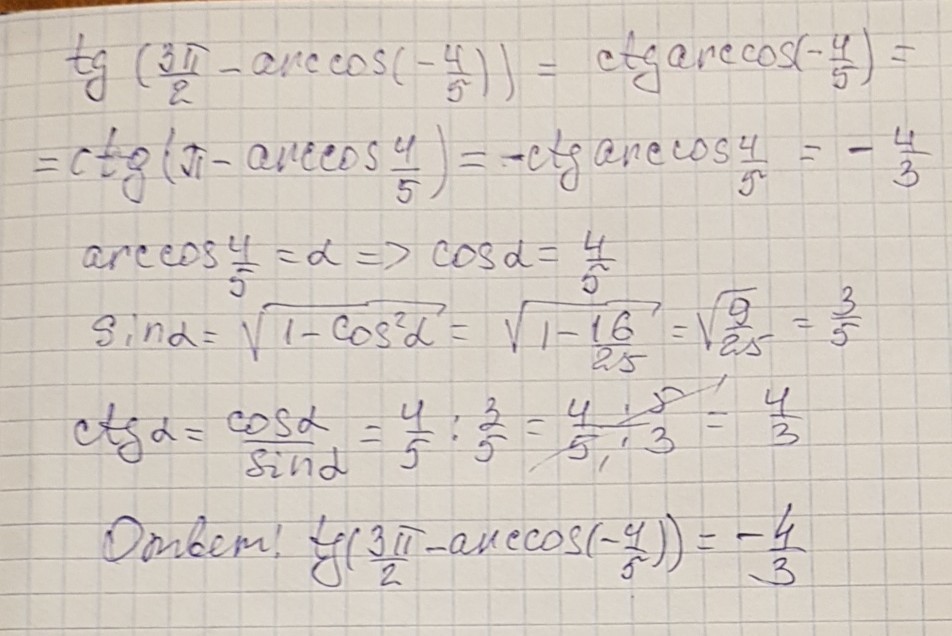 tg (3π/2 - arccos(-4/5)) = ctg arccos(-4/5) =
= ctg(π - arccos 4/5) = -ctg arccos 4/5 = - 4/3
arccos 4/5 = α => cosα = 4/5
sinα = √(1-cos²α) = √(1-16/25) = √(9/25) = 3/5
ctgα = cosα/sinα = 4/5 : 3/5 = 4·5/5·3 = 4/3
Ответ: tg(3π/2 - arccos(-4/5)) = -4/3